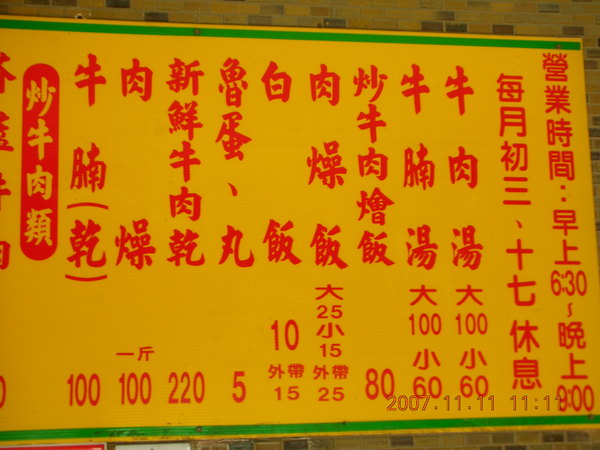 營業時間：早上6:30~晚上9:00
每月初三、十七休息
牛肉湯 大100 小60
牛腩湯 大100 小60
炒牛肉燴飯 80
肉燥飯 大25 小15 外帶25
白飯 10 外帶15
魯蛋、丸 5
新鮮牛肉乾 220
肉燥 一斤100
牛腩(乾) 100
炒牛肉類
牛肉
2007.11.11 11:11